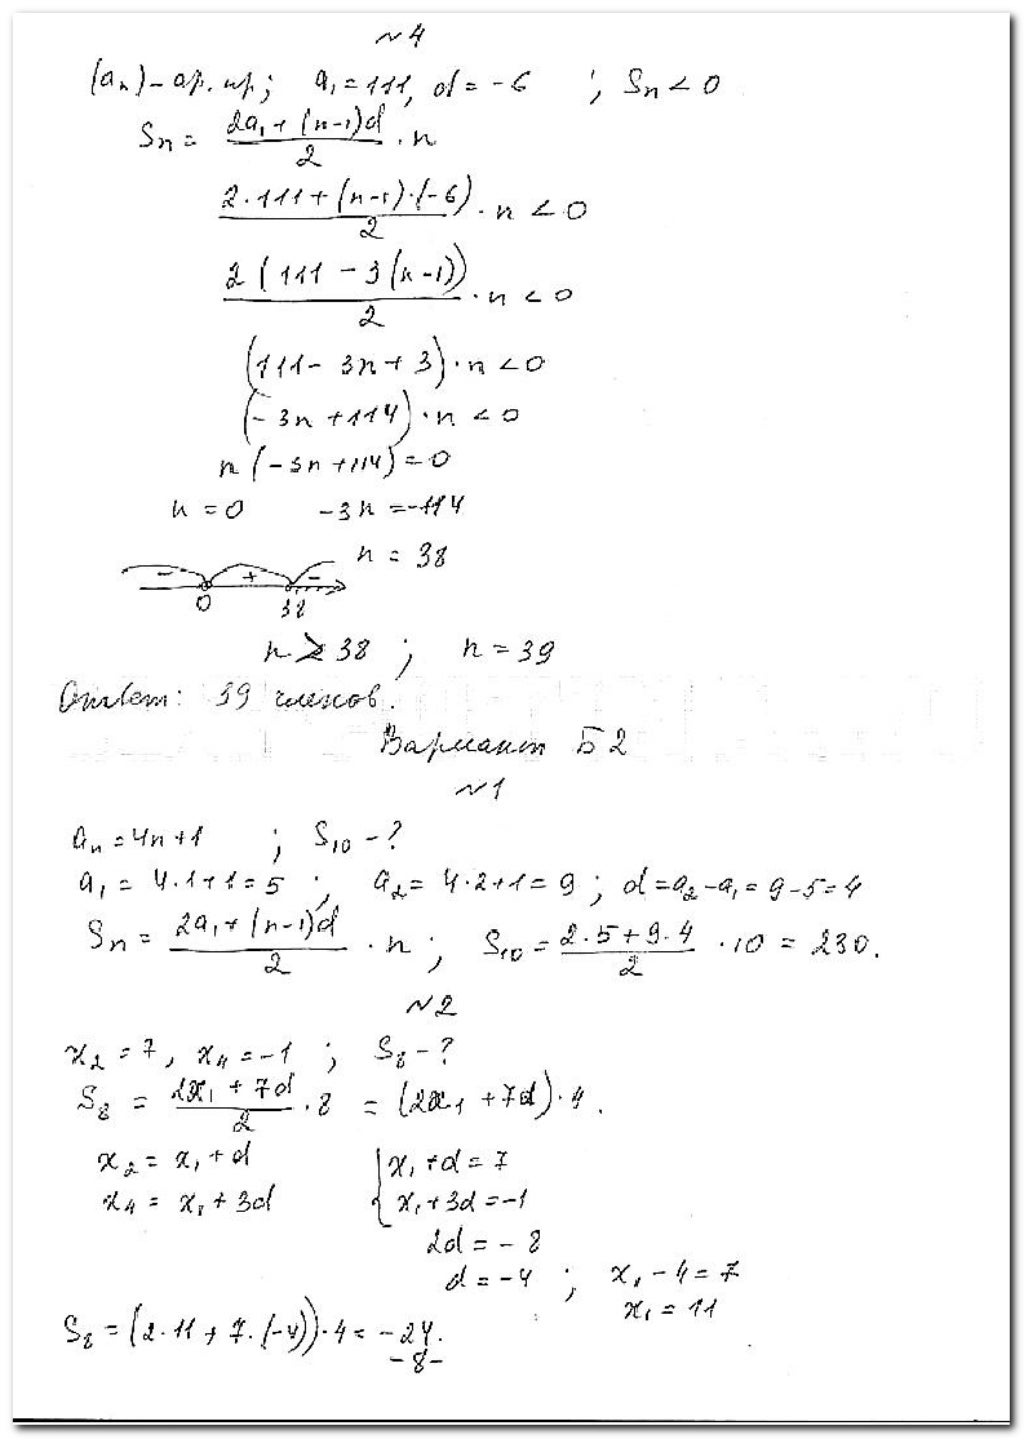 №4
(aₙ) - ар. пр.; a₁ = 111, d = -6 ; Sₙ < 0
Sₙ = (2a₁ + (n-1)d)/2 · n
(2·111 + (n-1)·(-6))/2 · n < 0
(2(111 - 3(n-1)))/2 · n < 0
(111 - 3n + 3)·n < 0
(-3n + 114)·n < 0
n(-3n + 114) = 0
n = 0 -3n = -114
n = 38
- + -
0 38
n > 38 ; n = 39
Ответ: 39 членов.
Вариант Б2
№1
aₙ = 4n + 1 ; S₁₀ - ?
a₁ = 4·1 + 1 = 5 ; a₂ = 4·2 + 1 = 9 ; d = a₂ - a₁ = 9 - 5 = 4
Sₙ = (2a₁ + (n-1)d)/2 · n ; S₁₀ = (2·5 + 9·4)/2 · 10 = 230.
№2
x₂ = 7, x₄ = -1 ; S₈ - ?
S₈ = (2x₁ + 7d)/2 · 8 = (2x₁ + 7d)·4.
x₂ = x₁ + d { x₁ + d = 7
x₄ = x₁ + 3d x₁ + 3d = -1
2d = -8
d = -4 ; x₁ - 4 = 7
x₁ = 11
S₈ = (2·11 + 7·(-4))·4 = -24.
-8-